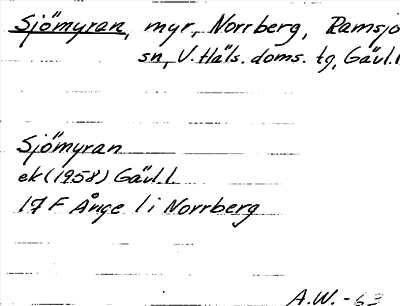 Sjömyran, myr, Norrberg, Ramsjö
sn, V. Häls. doms. tg, Gävl.l
Sjömyran
ek (1958) Gävl.l.
17 F Ånge 1 i Norrberg
A.W. -63